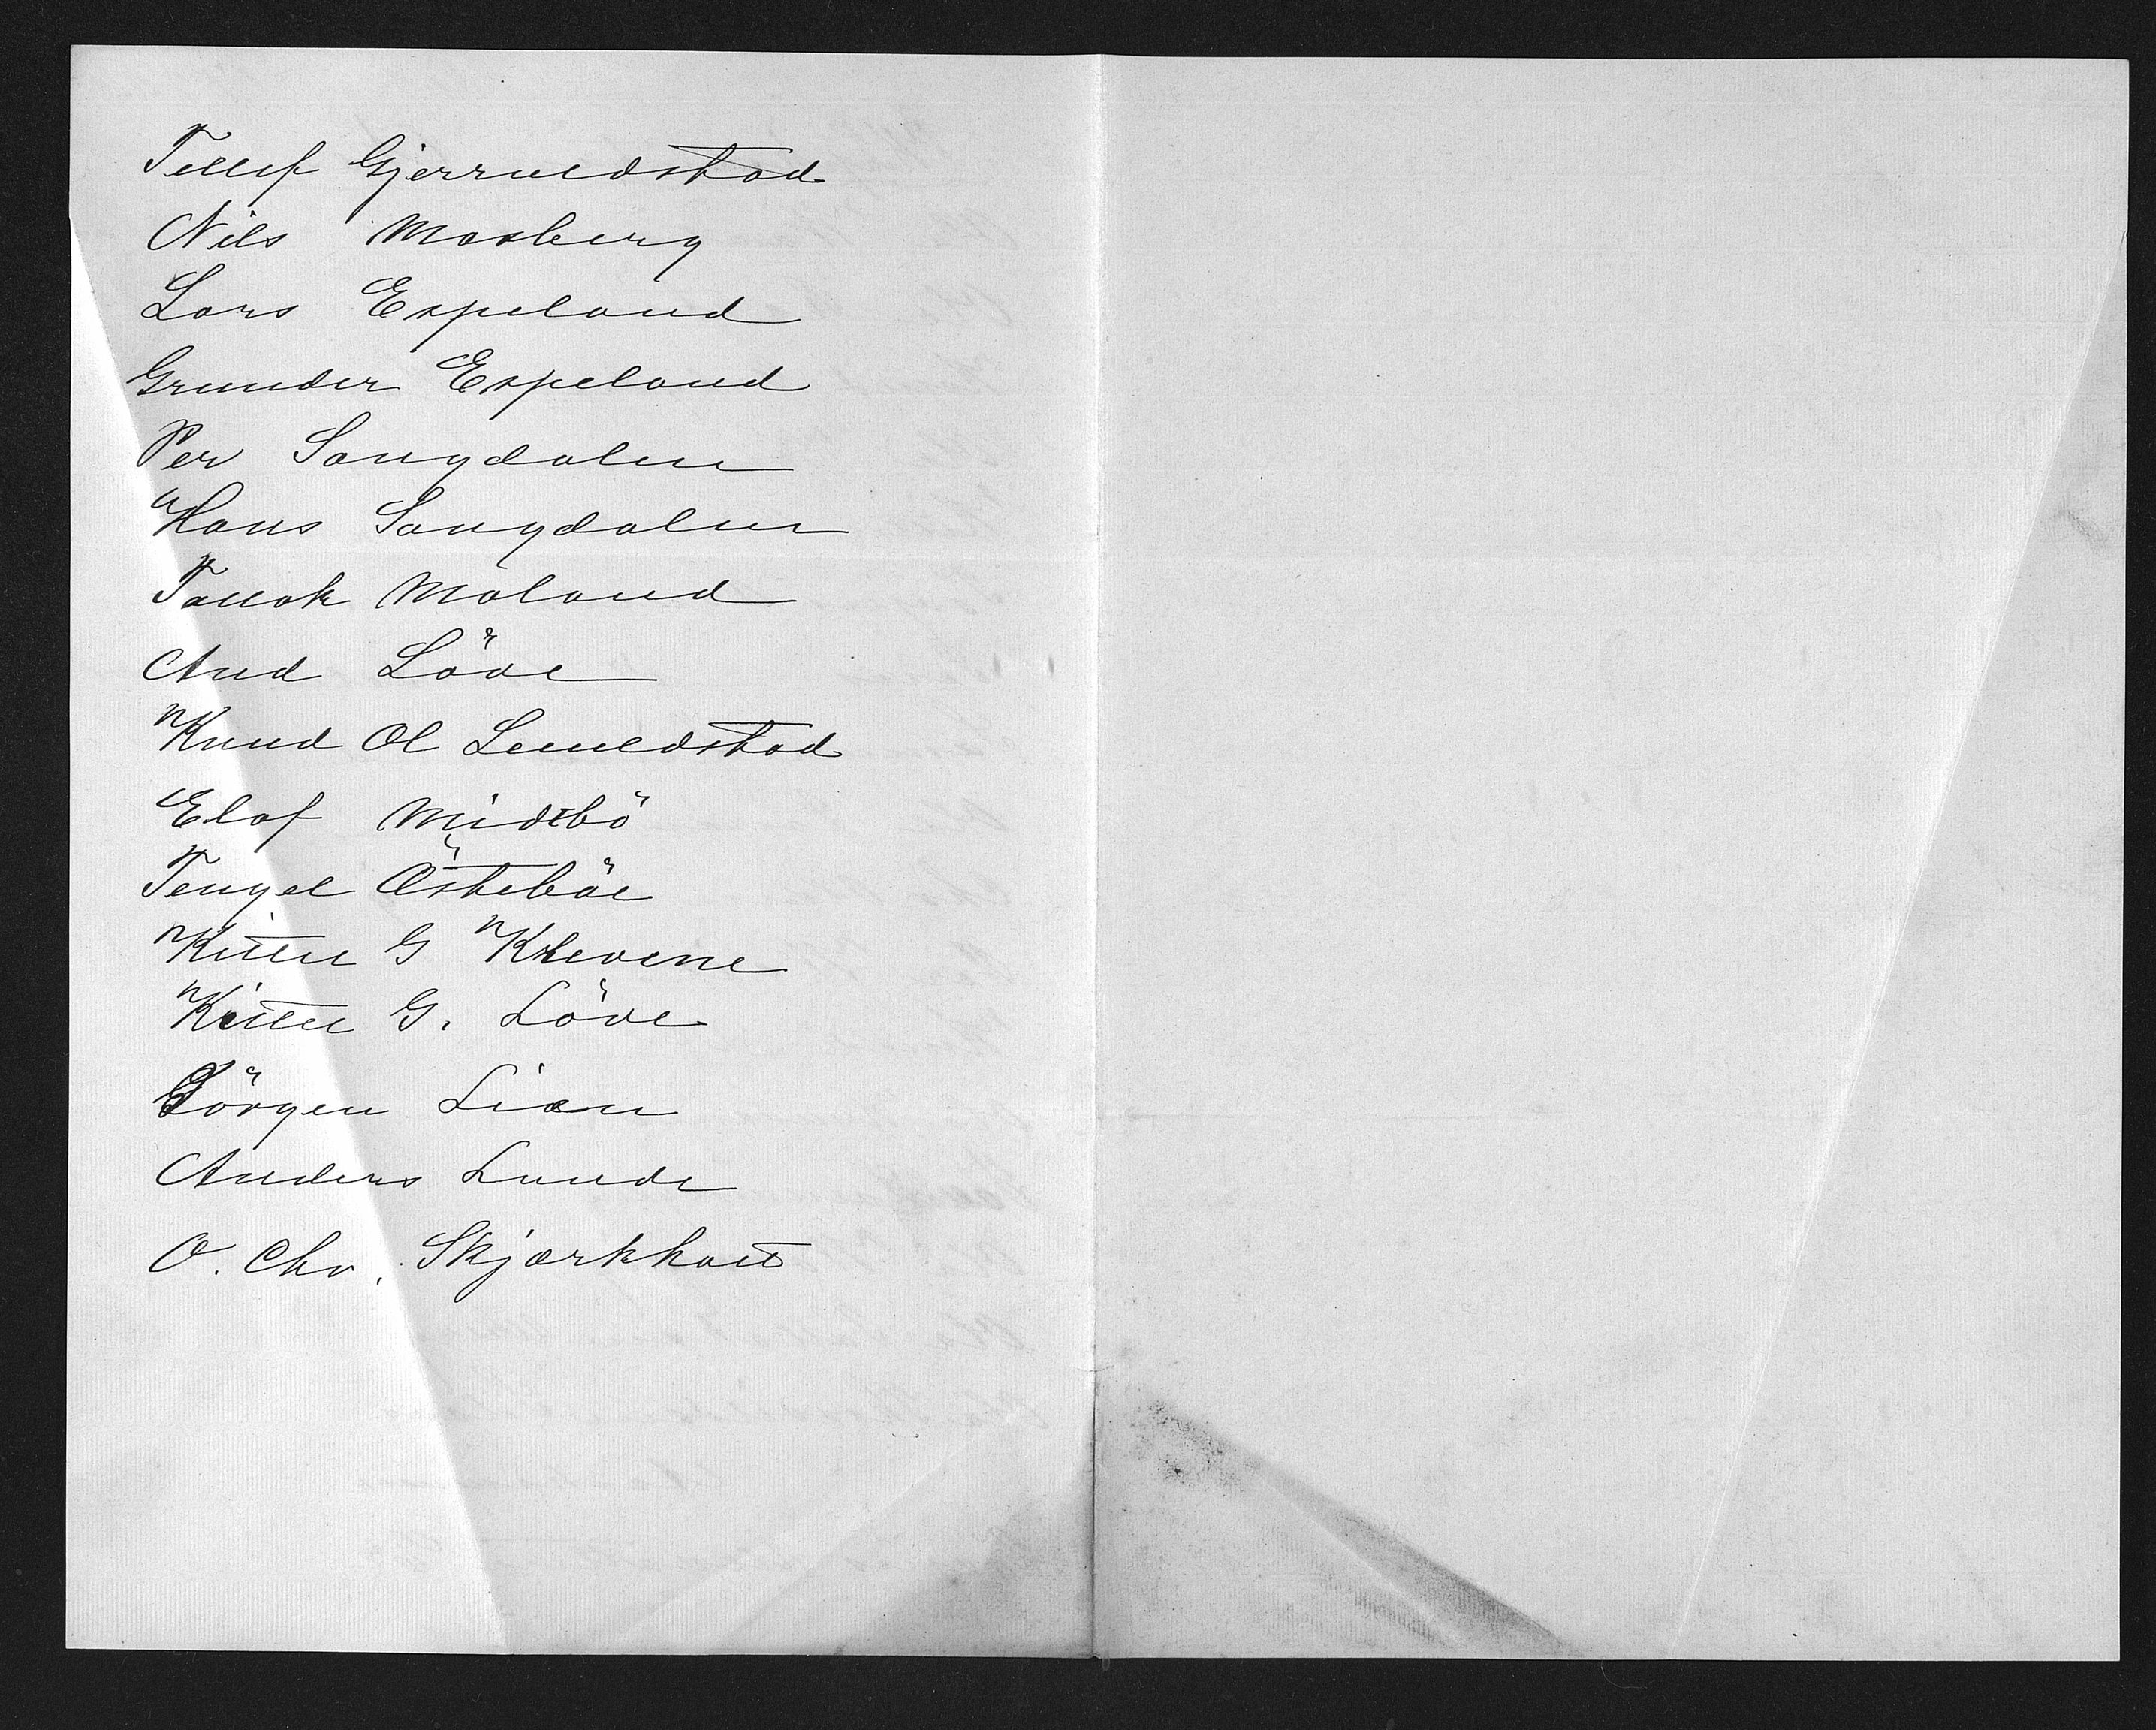 Tellef Gjerruldstad
Nils Mosberg
Lars Espeland
Grunder Espeland
Per Songdalen
Hans Songdalen
Tallak Moland
And Löve
Knud Ol Luneldstad
Elof Midtbö
Tengel Østeböe
Kittel G Klevene
Kittel G. Löve
Jörgen Lien
Anders Lunde
O. Chr. Skjærkholt